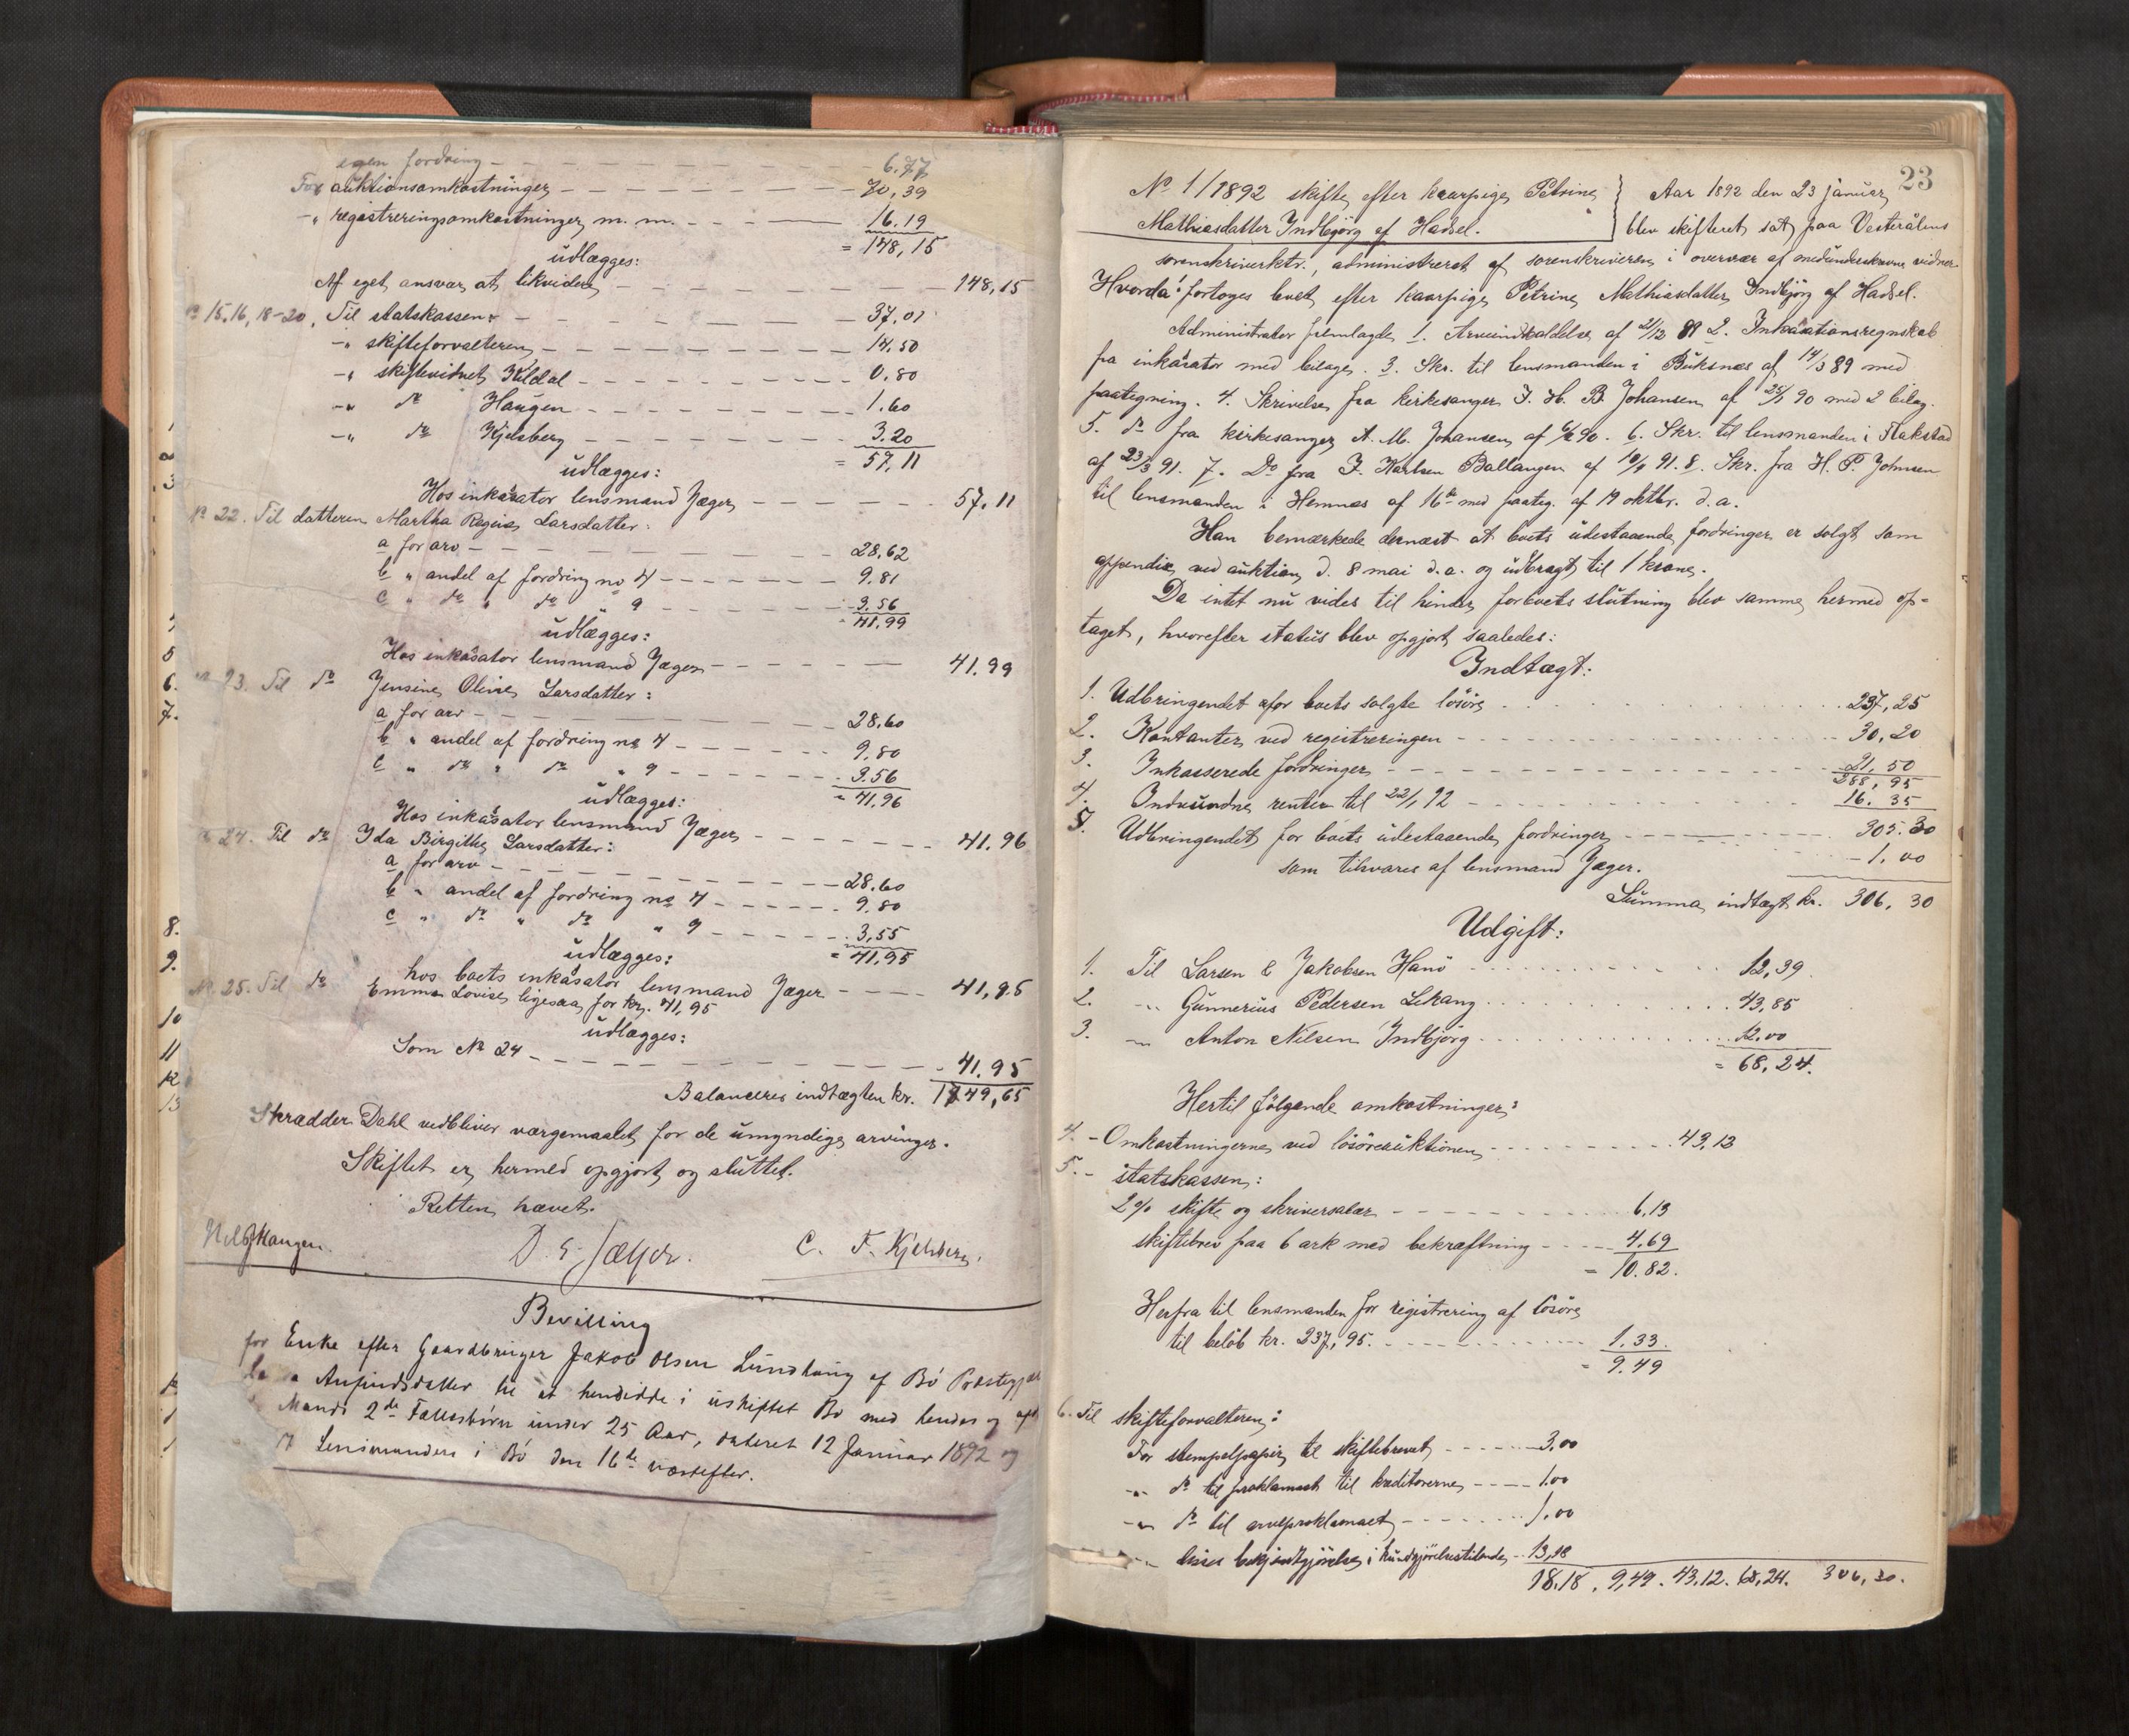 egen fordring - - - 6.77
For auktionsomkostninger - - - 70,39
-„ registreringsomkostninger m. m. - - - 16.19
= 148,15
udlægges:
Af eget ansvar at likvidere - - - 148,15
No 15,16,18-20, Til statskassen: - - - 37.01
-„ skifteforvalteren - - - 14,50
-„ skiftevidnet Kildal - - - 0.80
-„ do Haugen - - - 1.60
-„ do Kjelsberg - - - 3.20
= 57,11
udlægges:
Hos inkasator lensmand Jæger - - - 57,11
No 22. Til datteren Martha Regine Larsdatter:
a for arv - - - 28.62
b „ andel af fordring no 4 - - - 9.81
c „ do „ do „ 9 - - - 3.56
= 41,99
udlægges:
Hos inkasator lensmand Jæger - - - 41.99
No 23. Til do Jensine Oline Larsdatter:
a for arv - - - 28.60
b „ andel af fordring no 4 - - - 9,80
c „ do „ do „ 9 - - - 3.56
= 41,96
udlægges:
Hos inkasator lensmand Jæger - - - 41.96
No 24. Til do Ida Birgithe Larsdatter:
a for arv - - - 28.60
b „ andel af fordring no 4 - - - 9.80
c „ do „ do „ 9 - - - 3,55
= 41,95
udlægges:
hos boets inkasator lensmand Jæger - - - 41,95
No 25. Til do Emma Lovise ligesaa for kr. 41,95
udlægges:
Som No 24 - - - 41.95
Balanceres indtægten kr. 1749,65
Skrædder Dahl vedbliver værgemaalet for de umyndige arvinger.
Skiftet er hermed opgjort og sluttet.
Retten hævet.
Nils Haugen. D. E. Jæger. C. F. Kjelsberg.
Bevilling
for Enke efter Gaardbruger Jakob Olsen Lundhaug af Bö Præstegjæld
Anfindsdatter til at hensidde i uskiftet Bo med hendes og afd.
Mands 2de Fællesbörn under 25 Aar, dateret 12 Januar 1892 og
Lensmanden i Bö den 16de næstefter.
23
No 1/1892 skifte efter kaarpige Petrine
Mathiasdatter Indbjörg af Hadsel.
Aar 1892 den 23 januar
blev skifteret sat paa Vesterålens
sorenskriverktr., administreret af sorenskriveren i overvær af medunderskrevne vidner
Hvorda: fortoges boet efter kaarpige Petrine Mathiasdatter Indbjörg af Hadsel.
Administrator fremlagde 1. Arveindkaldelse af 21/12 89 2. Inkasationsregnskab
fra inkasator med bilage. 3. Skr. til lensmanden i Buksnes af 14/3 89 med
paategning. 4. Skrivelse fra kirkesanger J. H. B. Johansen af 25/1 90 med 2 bilag.
5. do fra kirkesanger A. M. Johansen af 6/2 90. 6. Skr. til lensmanden i Flakstad
af 23/3 91. 7. Do fra J. Karlsen Ballangen af 10/8 91. 8. Skr. fra H. P. Johnsen
til lensmanden i Hemnes af 16de med paateg. af 19 oktbr. d. a.
Han bemærkede dernæst at boets udestaaende fordringer er solgt som
appendix ved auktion d. 8 mai d. a. og udbragt til 1 krone.
Da intet nu vides til hinder for boets slutning blev samme hermed op-
taget, hvorefter status blev opgjort saaledes:
Indtægt:
1. Udbringendet for boets solgte lösöre . . . 237,25
2. Kontanter ved registreringen - - - 30,20
3. Inkasserede fordringer - - - 21,50
288,95
4. Indvundne renter til 22/1 92 - - - 16.35
305.30
5. Udbringendet for boets udestaaende fordringer - - - 1,00
som tilsvares af lensmand Jæger.
Summa indtægt kr. 306,30
Udgift:
1. Til Larsen & Jakobsen Hanö . . . 12,39
2. -„ Gunnerius Pedersen Lekang . . . 43,85
3. -„ Anton Nilsen Indbjörg . . . 12.00
= 68,24.
Hertil fölgende omkostninger:
4. - Omkostningerne ved lösöreauktionen - - - 43,12
5. - statskassen:
2% skifte og skriversalær - - - 6.13
skiftebrev paa 6 ark med bekræftning - - - 4.69
= 10.82.
Herfra til lensmanden for registrering af lösöre
til belöb kr. 237,95. - - - 1.33.
= 9.49
6. Til skifteforvalteren:
For stempelpapir til skiftebrevet - - - 3,00
-„ do til proklamaet til kreditorerne - - - 1.00
-„ do til arveproklamaet - - - 1,00
-„ disses bekjendtgjörelse i kundgjörelsestidende - 13,18
18,18. 9,49. 43,12. 68,24. 306,30.